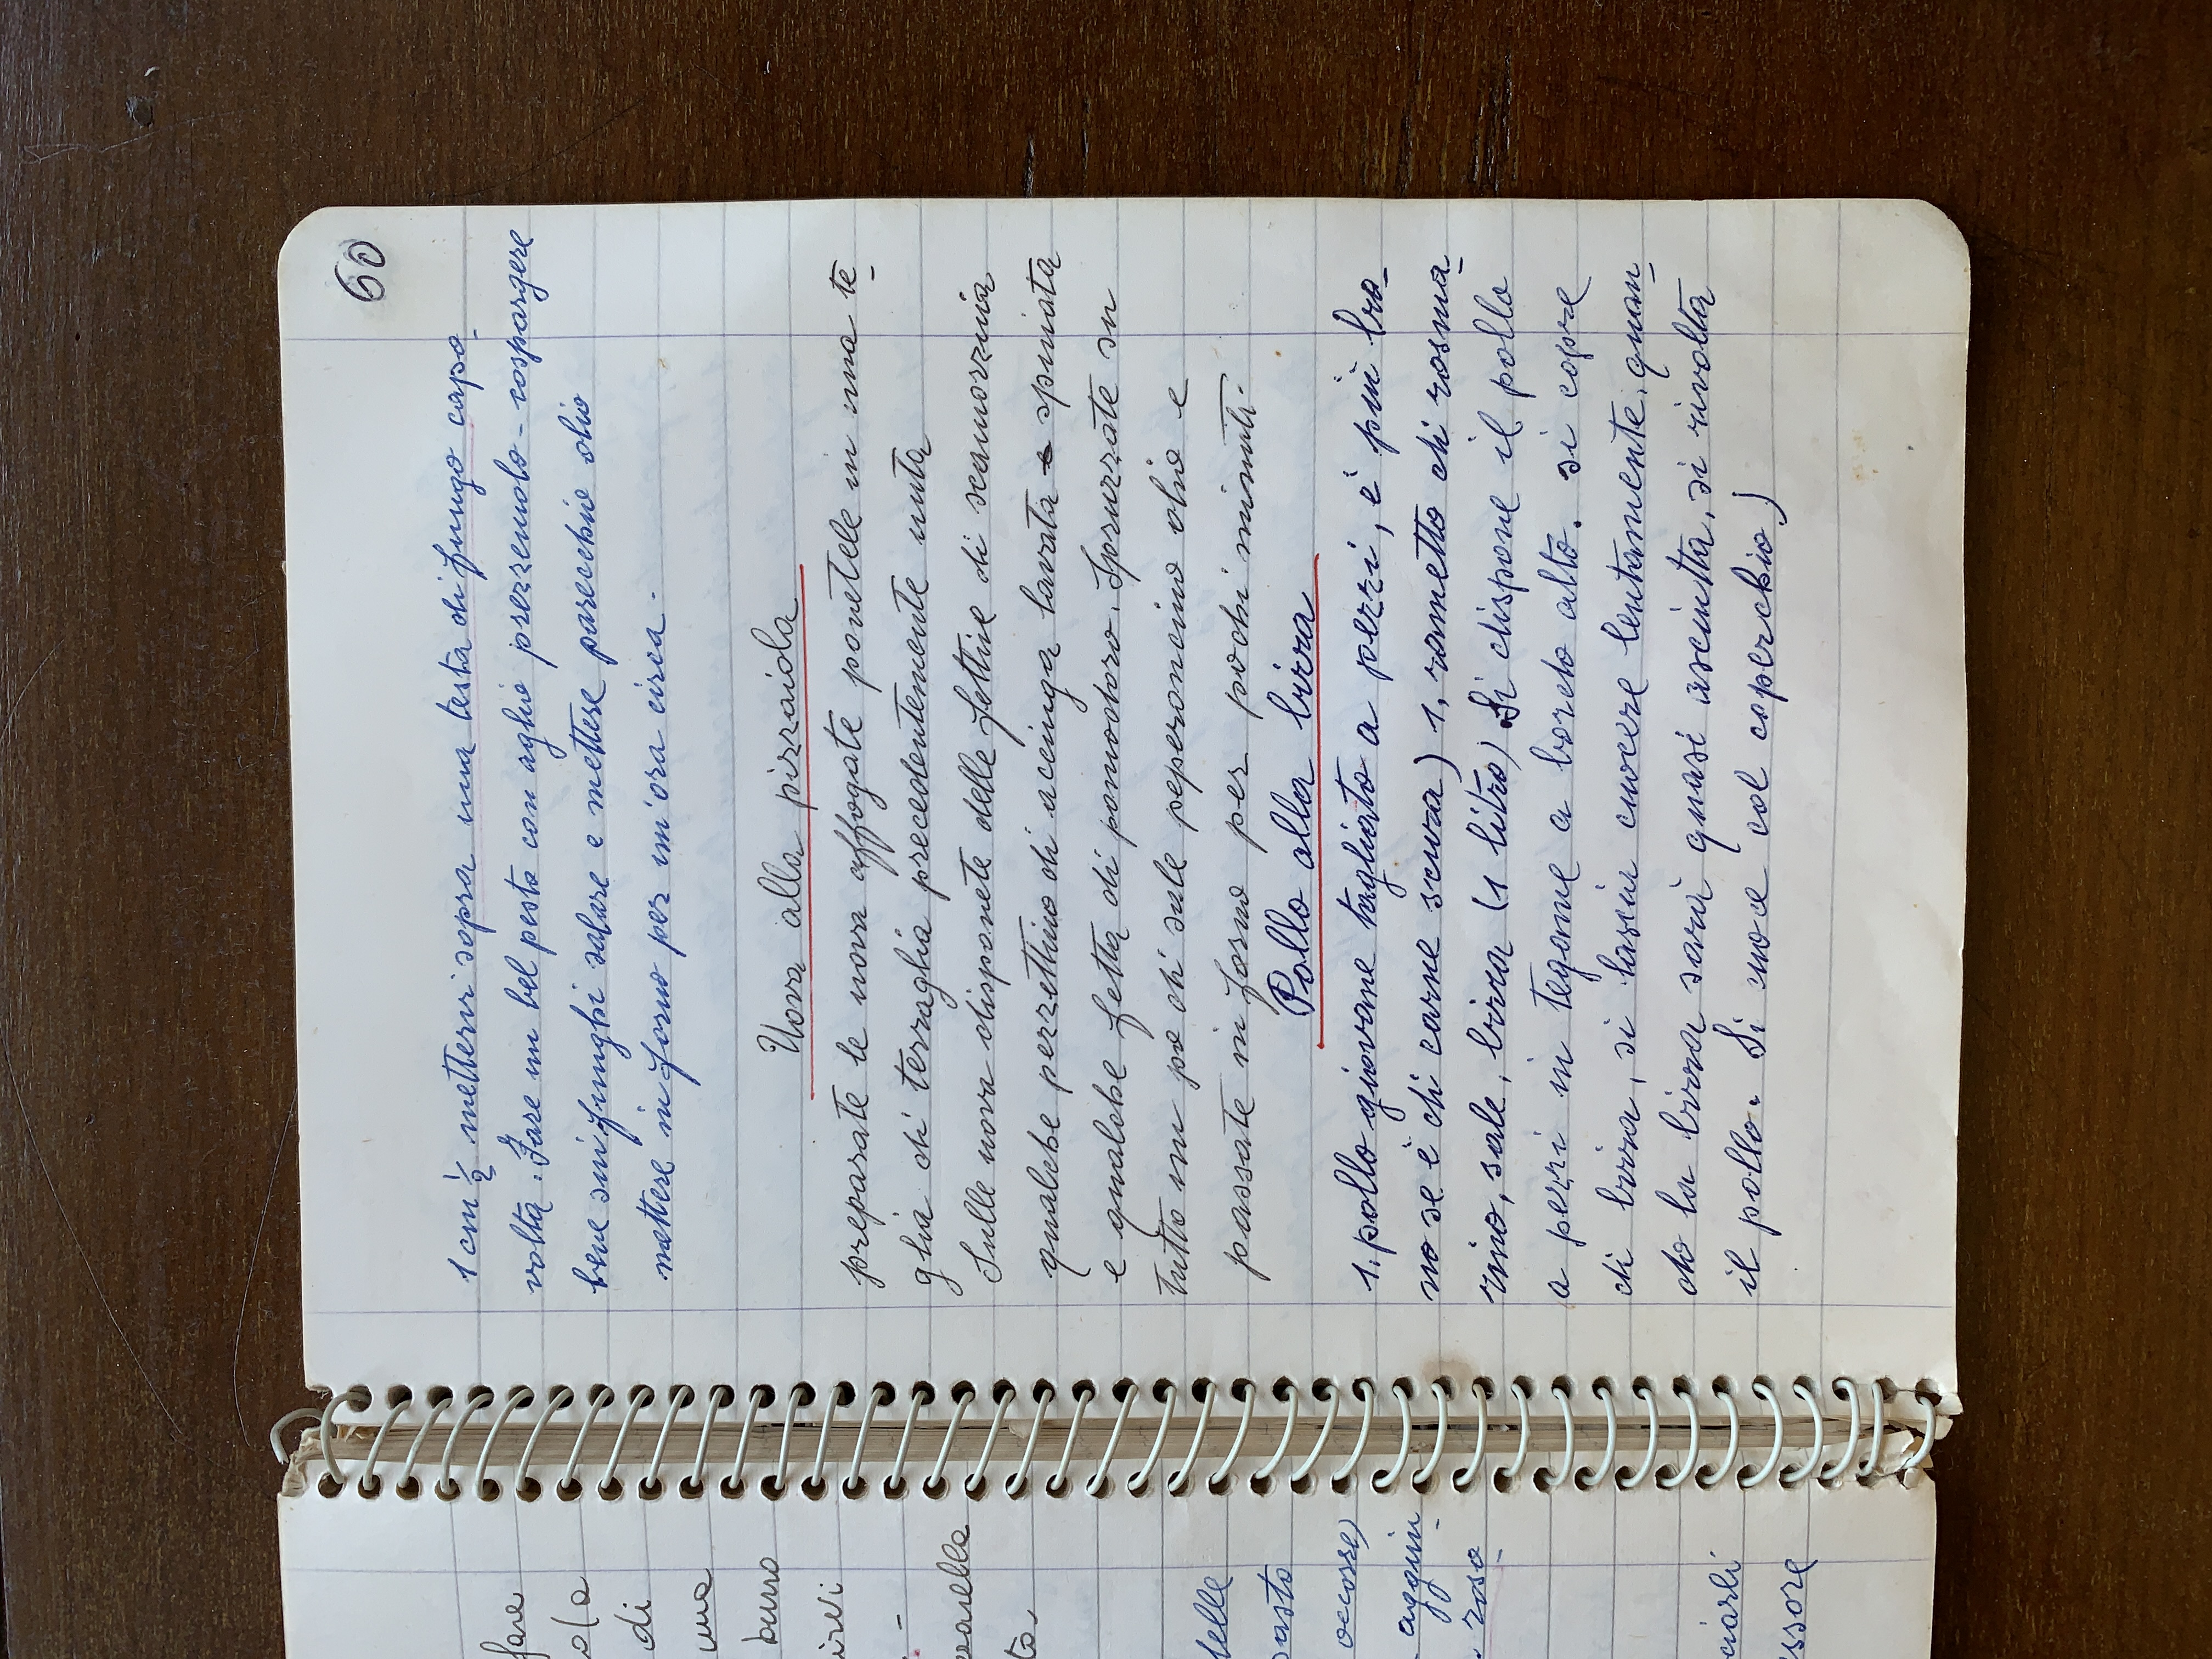 fare
di
una
burro
irvi
. -
zarella
to
delle
pasto
occorre)
aggiun_
. rosa
ciarli
ussore
60
1 cm 1/2 mettervi sopra una testa di fungo capo_
volta. Fare un bel pesto con aglio prezzemolo - cospargere
bene sui funghi salare e mettere parecchio olio
mettere in forno per un'ora circa -
Uova alla pizzaiola
preparate le uova affogate ponetele in una te_
glia di terraglia precedentemente unta
Sulle uova disponete delle fettine di scamorzina
qualche pezzettino di acciuga lavata e spinata
e qualche fetta di pomodoro. Spruzzate su
tutto un po di sale peperoncino olio e
passate in forno per pochi minuti.
Pollo alla birra
1. pollo giovane tagliato a pezzi, è più buo_
no se è di carne scura) 1. rametto di rosma_
rino, sale, birra (1 litro) Si dispone il pollo
a pezzi in tegame a bordo alto. si copre
di birra, si lascia cuocere lentamente, quan_
do la birra sarà quasi asciutta, si rivolta
il pollo. Si cuoce col coperchio)